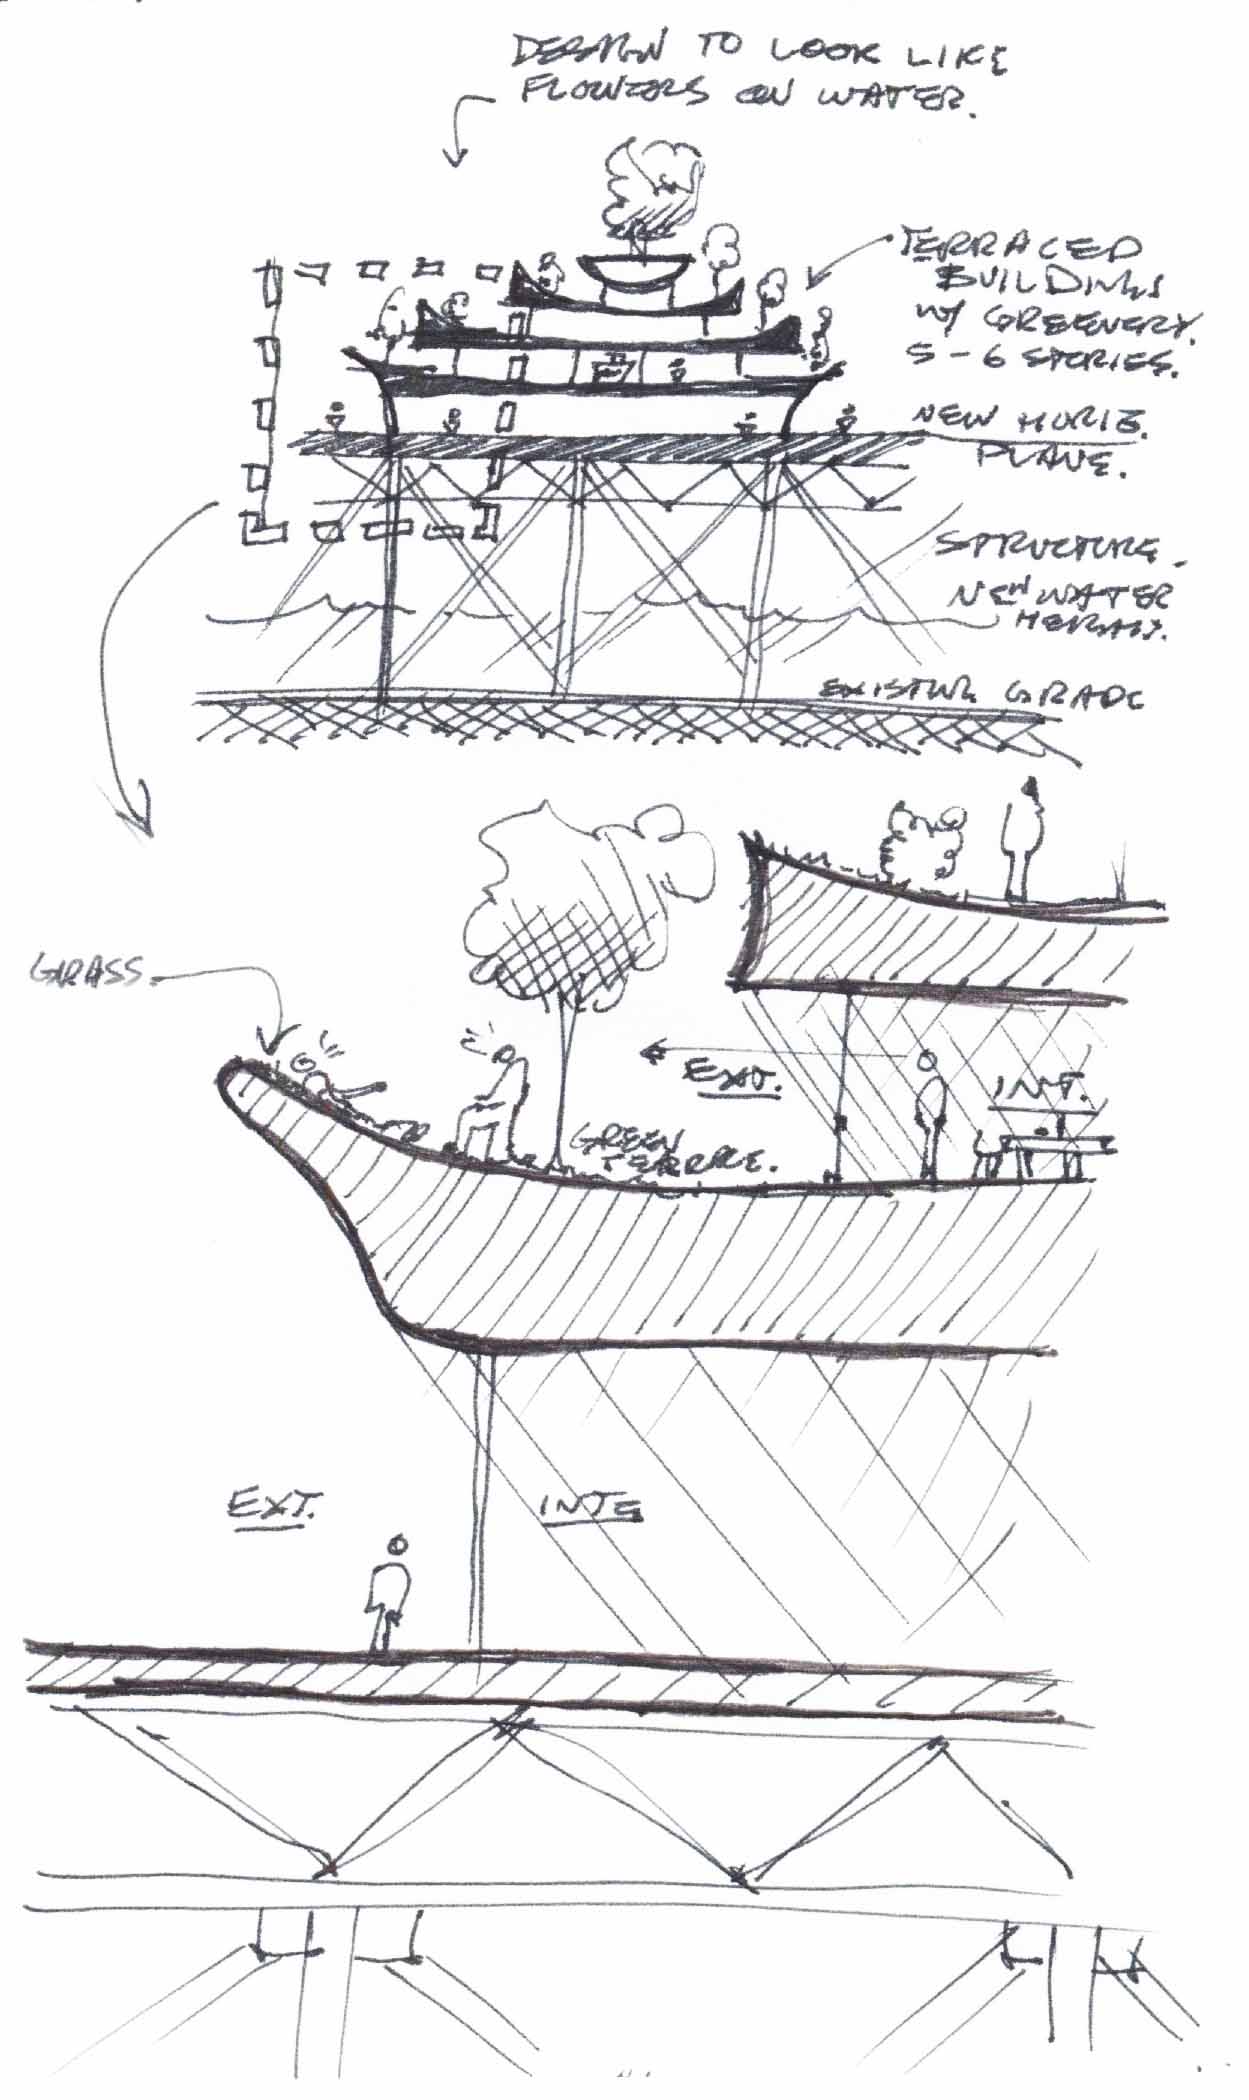 DESIGN TO LOOK LIKE
FLOWERS ON WATER.
TERRACED
BUILDINGS
W/ GREENERY.
5-6 STORIES.
NEW HORIZ.
PLANE.
STRUCTURE.
NEW WATER
EXISTING GRADE
GRASS.
EXT.
INT.
GREEN
TERRACE.
EXT.
INTE